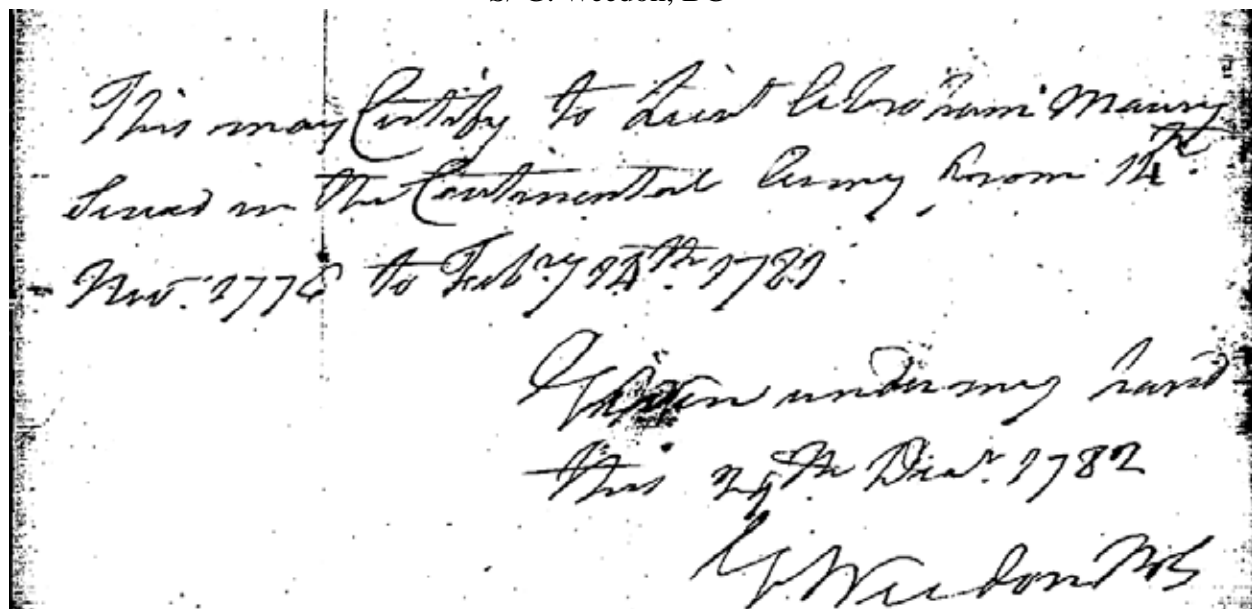 S/ G. Weedon, BG
This may Certify to Lieut Abraham Maury
Served in the Continental Army from 14th
Nov. 1776 to Febry 14th. 1781
Given under my hand
this 29th Decr. 1782
G. Weedon BG